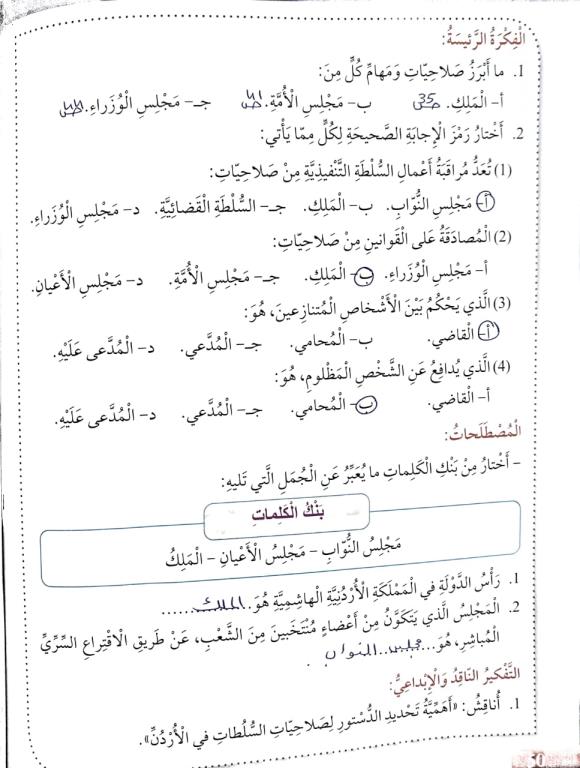 الْفِكْرَةُ الرَّئيسَةُ:
1. ما أَبْرَزُ صَلاحِيّاتِ وَمَهامِّ كُلٍّ مِنَ:
أ- الْمَلِكِ. ب- مَجْلِسِ الْأُمَّةِ. جـ- مَجْلِسِ الْوُزَراءِ.
2. أَخْتارُ رَمْزَ الْإِجابَةِ الصَّحيحَةِ لِكُلٍّ مِمّا يَأْتي:
(1) تُعَدُّ مُراقَبَةُ أَعْمالِ السُّلْطَةِ التَّنْفيذِيَّةِ مِنْ صَلاحِيّاتِ:
أ- مَجْلِسِ النُّوّابِ. ب- الْمَلِكِ. جـ- السُّلْطَةِ الْقَضائِيَّةِ. د- مَجْلِسِ الْوُزَراءِ.
(2) الْمُصادَقَةُ عَلى الْقَوانينِ مِنْ صَلاحِيّاتِ:
أ- مَجْلِسِ الْوُزَراءِ. ب- الْمَلِكِ. جـ- مَجْلِسِ الْأُمَّةِ. د- مَجْلِسِ الْأَعْيانِ.
(3) الَّذي يَحْكُمُ بَيْنَ الْأَشْخاصِ الْمُتَنازِعينَ، هُوَ:
أ- الْقاضي. ب- الْمُحامي. جـ- الْمُدَّعي. د- الْمُدَّعى عَلَيْهِ.
(4) الَّذي يُدافِعُ عَنِ الشَّخْصِ الْمَظْلومِ، هُوَ:
أ- الْقاضي. ب- الْمُحامي. جـ- الْمُدَّعي. د- الْمُدَّعى عَلَيْهِ.
الْمُصْطَلَحاتُ:
- أَخْتارُ مِنْ بَنْكِ الْكَلِماتِ ما يُعَبِّرُ عَنِ الْجُمَلِ الَّتي تَليهِ:
بَنْكُ الْكَلِماتِ
مَجْلِسُ النُّوّابِ - مَجْلِسُ الْأَعْيانِ - الْمَلِكُ
1. رَأْسُ الدَّوْلَةِ في الْمَمْلَكَةِ الْأُرْدُنِيَّةِ الْهاشِمِيَّةِ هُوَ..الملك......
2. الْمَجْلِسُ الَّذي يَتَكَوَّنُ مِنْ أَعْضاءٍ مُنْتَخَبينَ مِنَ الشَّعْبِ، عَنْ طَريقِ الْاقْتِراعِ السِّرِّيِّ
الْمُباشِرِ، هُوَ...مجلس النواب.
التَّفْكيرُ النّاقِدُ وَالْإِبْداعِيُّ:
1. أُناقِشُ: «أَهَمِّيَّةُ تَحْديدِ الدُّسْتورِ لِصَلاحِيّاتِ السُّلُطاتِ في الْأُرْدُنِّ».
50